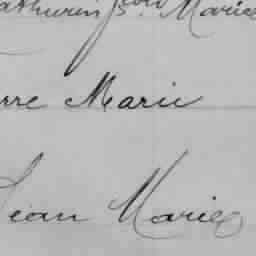 athurin Js. Marie
rre Marie
Jean Marie